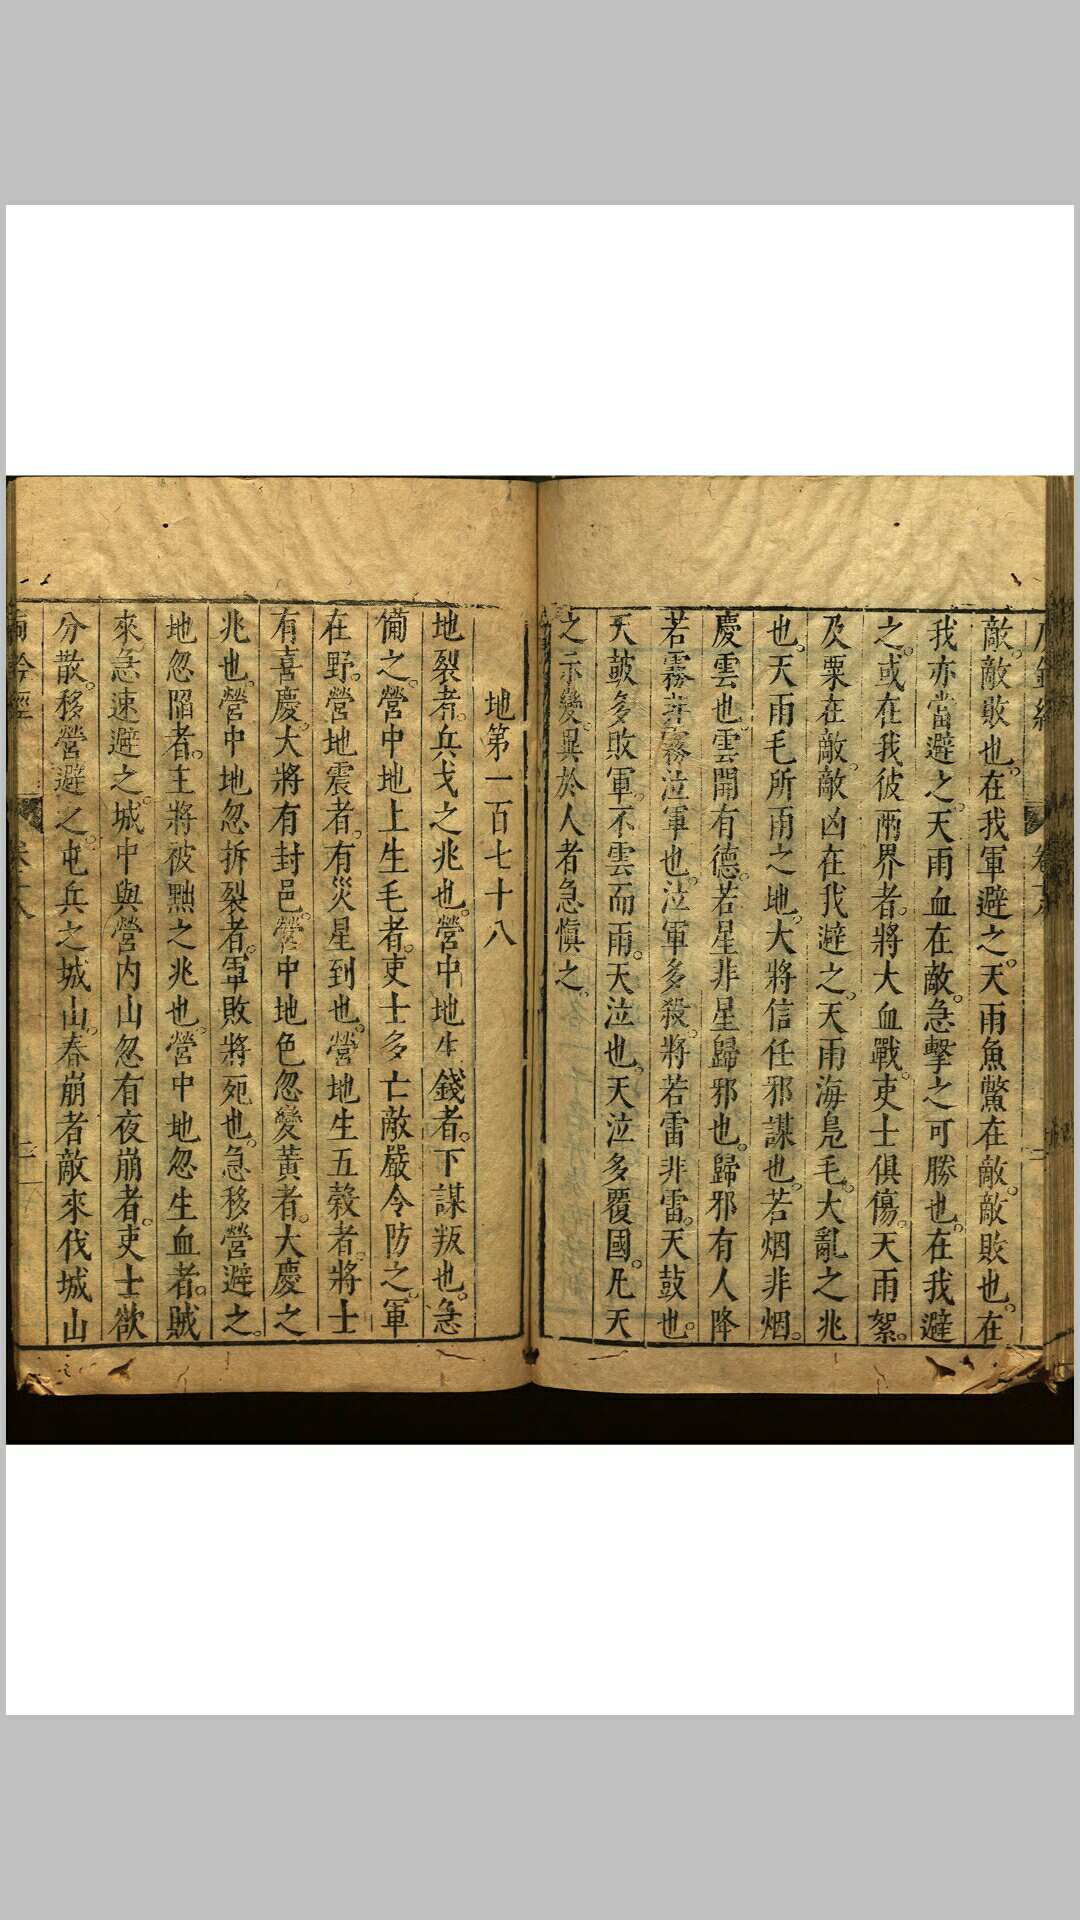 敵。敵敗也。在我軍避之。天雨魚鱉在敵。敵敗也。在
我亦當避之。天雨血在敵。急擊之可勝也。在我避
之。或在我彼兩界者。將大血戰。吏士俱傷。天雨絮。
及粟在敵。敵凶在我避之。天雨海鳧毛。大亂之兆
也。天雨毛所雨之地。大將信任邪謀也。若烟非烟。
慶雲也。雲開有德。若星非星歸邪也。歸邪有人降
若霧非霧泣軍也。泣軍多殺將。若雷非雷。天鼓也。
天鼓多敗軍。不雲而雨。天泣也。天泣多覆國。凡天
之示變。異於人者急慎之。
地第一百七十八
地裂者。兵戈之兆也。營中地生錢者。下謀叛也。急
備之。營中地上生毛者。吏士多亡敵嚴令防之。軍
在野。營地震者。有災星到也。營地生五穀者。將士
有喜慶。大將有封邑。營中地色忽變黃者。大慶之
兆也。營中地忽拆裂者。軍敗將死也。急移營避之。
地忽陷者。主將被黜之兆也。營中地忽生血者。賊
來。急速避之。城中與營內山忽有夜崩者。吏士欲
分散。移營避之。屯兵之城山。春崩者敵來伐城山
卷十八